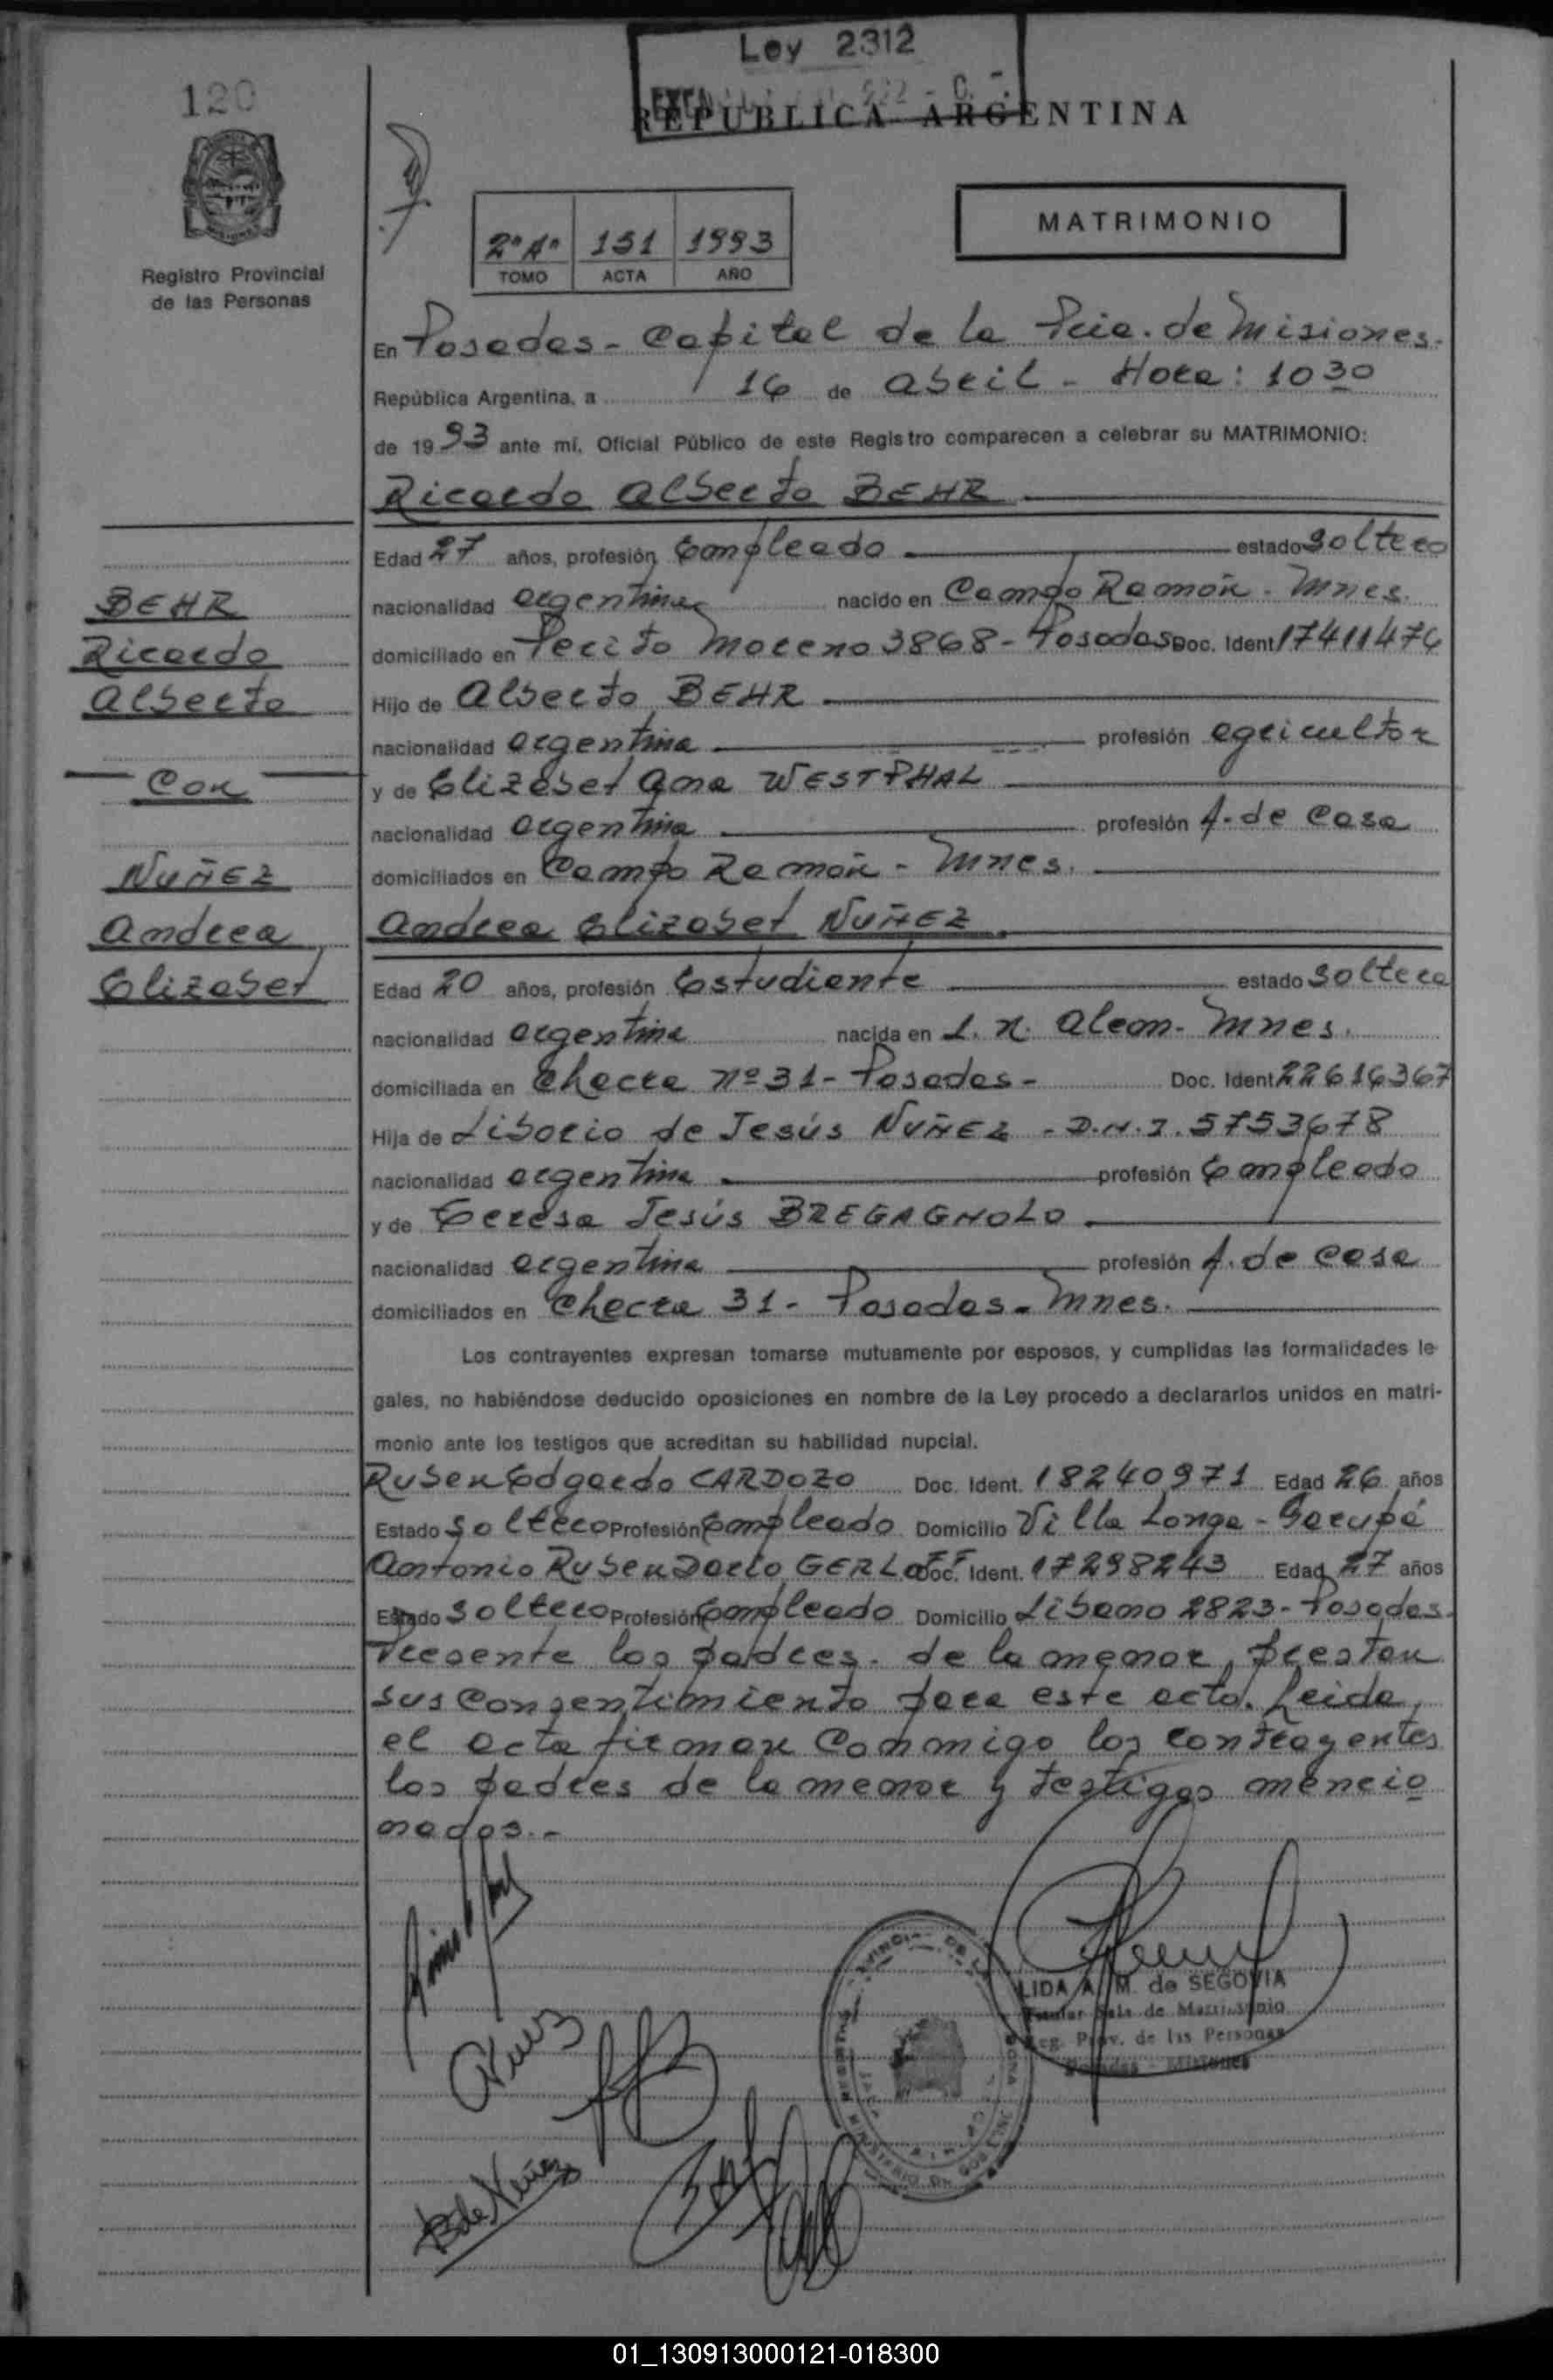 Ley 2312
120
REPUBLICA ARGENTINA
Registro Provincial
de las Personas
2º Aº 151 1993
TOMO ACTA AÑO
MATRIMONIO
En Posadas - Capital de la Pcia. de Misiones.
República Argentina, a 16 de Abril - Hora: 1030
de 1993 ante mí, Oficial Público de este Registro comparecen a celebrar su MATRIMONIO:
Ricardo Alberto BEHR
Edad 27 años, profesión Empleado estado Soltero
nacionalidad argentina nacido en Campo Ramón - Mnes.
domiciliado en Perito Moreno 3868 - Posadas Doc. Ident 17411476
Hijo de Alberto BEHR
nacionalidad argentina profesión agricultor
y de Elizabet Ana WESTPHAL
nacionalidad argentina profesión A. de Casa
domiciliados en Campo Ramón - Mnes.
BEHR
Ricardo
Alberto
Con
NUÑEZ
Andrea
Elizabet
Andrea Elizabet NUÑEZ
Edad 20 años, profesión Estudiante estado Soltera
nacionalidad argentina nacida en L. N. Alem - Mnes.
domiciliada en Chacra nº 31 - Posadas - Doc. Ident 22616367
Hija de Liborio de Jesús NUÑEZ - D.N.I. 5753678
nacionalidad argentina profesión Empleado
y de Teresa Jesús BREGAGNOLO
nacionalidad argentina profesión A. de casa
domiciliados en Chacra 31 - Posadas - Mnes.
Los contrayentes expresan tomarse mutuamente por esposos, y cumplidas las formalidades le-
gales, no habiéndose deducido oposiciones en nombre de la Ley procedo a declararlos unidos en matri-
monio ante los testigos que acreditan su habilidad nupcial.
Ruben Edgardo CARDOZO Doc. Ident. 18240971 Edad 26 años
Estado Soltero Profesión Empleado Domicilio Villa Longa - Garupá
Antonio Ruben Dario GERLOFF Doc. Ident. 17298243 Edad 27 años
Estado Soltero Profesión Empleado Domicilio Libano 2823 - Posadas.
Presente los padres de la menor, prestan
sus consentimiento para este acto. Leida
el acta firman conmigo los contrayentes
los padres de la menor y testigos mencio
nados.-
LIDA A. M. de SEGOVIA
Titular Sala de Matrimonio
Reg. Prov. de las Personas
Posadas - Misiones
B de Nuñez
01_130913000121-018300